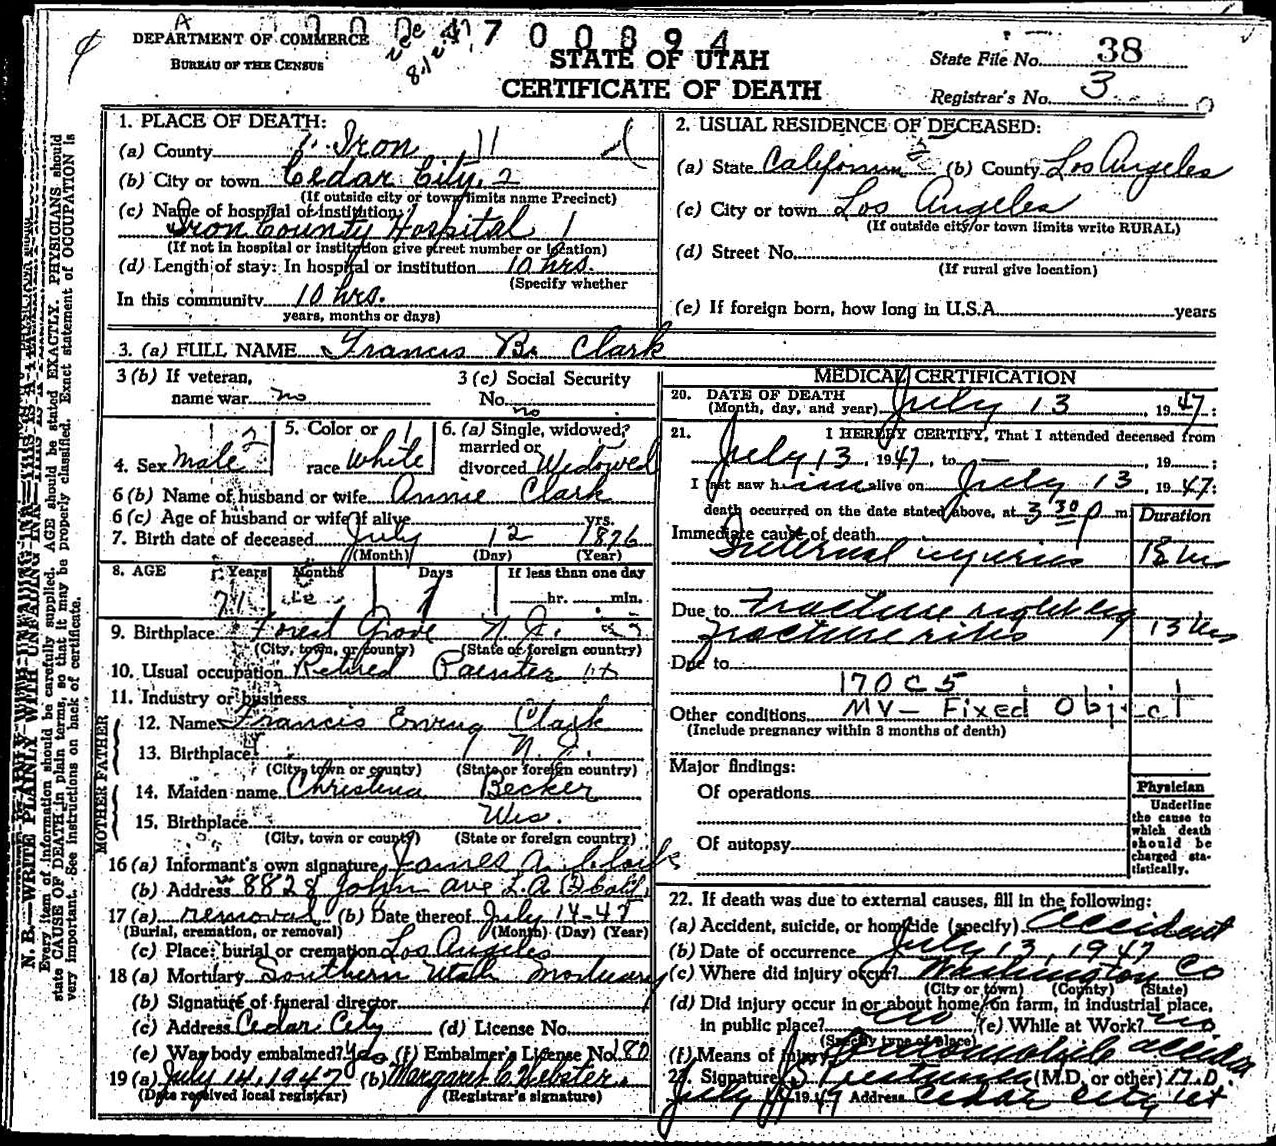 DEPARTMENT OF COMMERCE
BUREAU OF THE CENSUS
4700894
STATE OF UTAH
CERTIFICATE OF DEATH
State File No. 38
Registrar's No. 3
N. B.—WRITE PLAINLY WITH UNFADING INK—THIS IS A
Every item of information should be carefully supplied. AGE should be stated EXACTLY. PHYSICIANS should
state CAUSE OF DEATH in plain terms, so that it may be properly classified. Exact statement of OCCUPATION is
very important. See instructions on back of certificate.
1. PLACE OF DEATH:
(a) County Iron
(b) City or town Cedar City
(If outside city or town limits name Precinct)
(c) Name of hospital or institution:
Iron County Hospital
(If not in hospital or institution give street number or location)
(d) Length of stay: In hospital or institution 10 hrs.
(Specify whether
In this community 10 hrs.
years, months or days)
2. USUAL RESIDENCE OF DECEASED:
(a) State California (b) County Los Angeles
(c) City or town Los Angeles
(If outside city or town limits write RURAL)
(d) Street No.
(If rural give location)
(e) If foreign born, how long in U.S.A. years
3. (a) FULL NAME Francis B. Clark
3 (b) If veteran, name war no
3 (c) Social Security No. no
4. Sex Male
5. Color or race White
6. (a) Single, widowed, married or divorced Widowed
6 (b) Name of husband or wife Annie Clark
6 (c) Age of husband or wife if alive yrs.
7. Birth date of deceased July 12 1876
(Month) (Day) (Year)
8. AGE Years Months Days If less than one day
71 1 hr. min.
9. Birthplace Forest Grove N. J.
(City, town, or county) (State or foreign country)
10. Usual occupation Retired Painter
11. Industry or business
FATHER
12. Name Francis Clark
13. Birthplace N. J.
(City, town or county) (State or foreign country)
MOTHER
14. Maiden name Christena Becker
15. Birthplace Wis.
(City, town or county) (State or foreign country)
16 (a) Informant's own signature James A. Clark
(b) Address 8828 John ave L.A. Calif.
17 (a) removal (b) Date thereof July 14-47
(Burial, cremation, or removal) (Month) (Day) (Year)
(c) Place: burial or cremation Los Angeles
18 (a) Mortuary Southern Utah Mortuary
(b) Signature of funeral director
(c) Address Cedar City (d) License No.
(e) Was body embalmed? Yes (f) Embalmer's License No. 180
19 (a) July 14, 1947 (b) Margaret C. Webster
(Date received local registrar) (Registrar's signature)
MEDICAL CERTIFICATION
20. DATE OF DEATH
(Month, day, and year) July 13, 1947:
21. I HEREBY CERTIFY, That I attended deceased from
July 13, 1947, to —, 19 ;
I last saw him alive on July 13, 1947:
death occurred on the date stated above, at 3 30 p m.
Duration
Immediate cause of death
Internal injuries
Due to Fracture right leg
Fracture ribs 13 hrs
Due to
170 C 5
Other conditions MV- Fixed Object
(Include pregnancy within 3 months of death)
Major findings:
Of operations
Of autopsy
Physician
Underline
the cause to
which death
should be
charged sta-
tistically.
22. If death was due to external causes, fill in the following:
(a) Accident, suicide, or homicide (specify) accident
(b) Date of occurrence July 13, 1947
(c) Where did injury occur? Washington Co
(City or town) (County) (State)
(d) Did injury occur in or about home, on farm, in industrial place,
in public place? no (e) While at Work? no
(Specify type of place)
(f) Means of injury Automobile accident
23. Signature (M.D. or other) M.D.
July 1947 Address Cedar City Ut